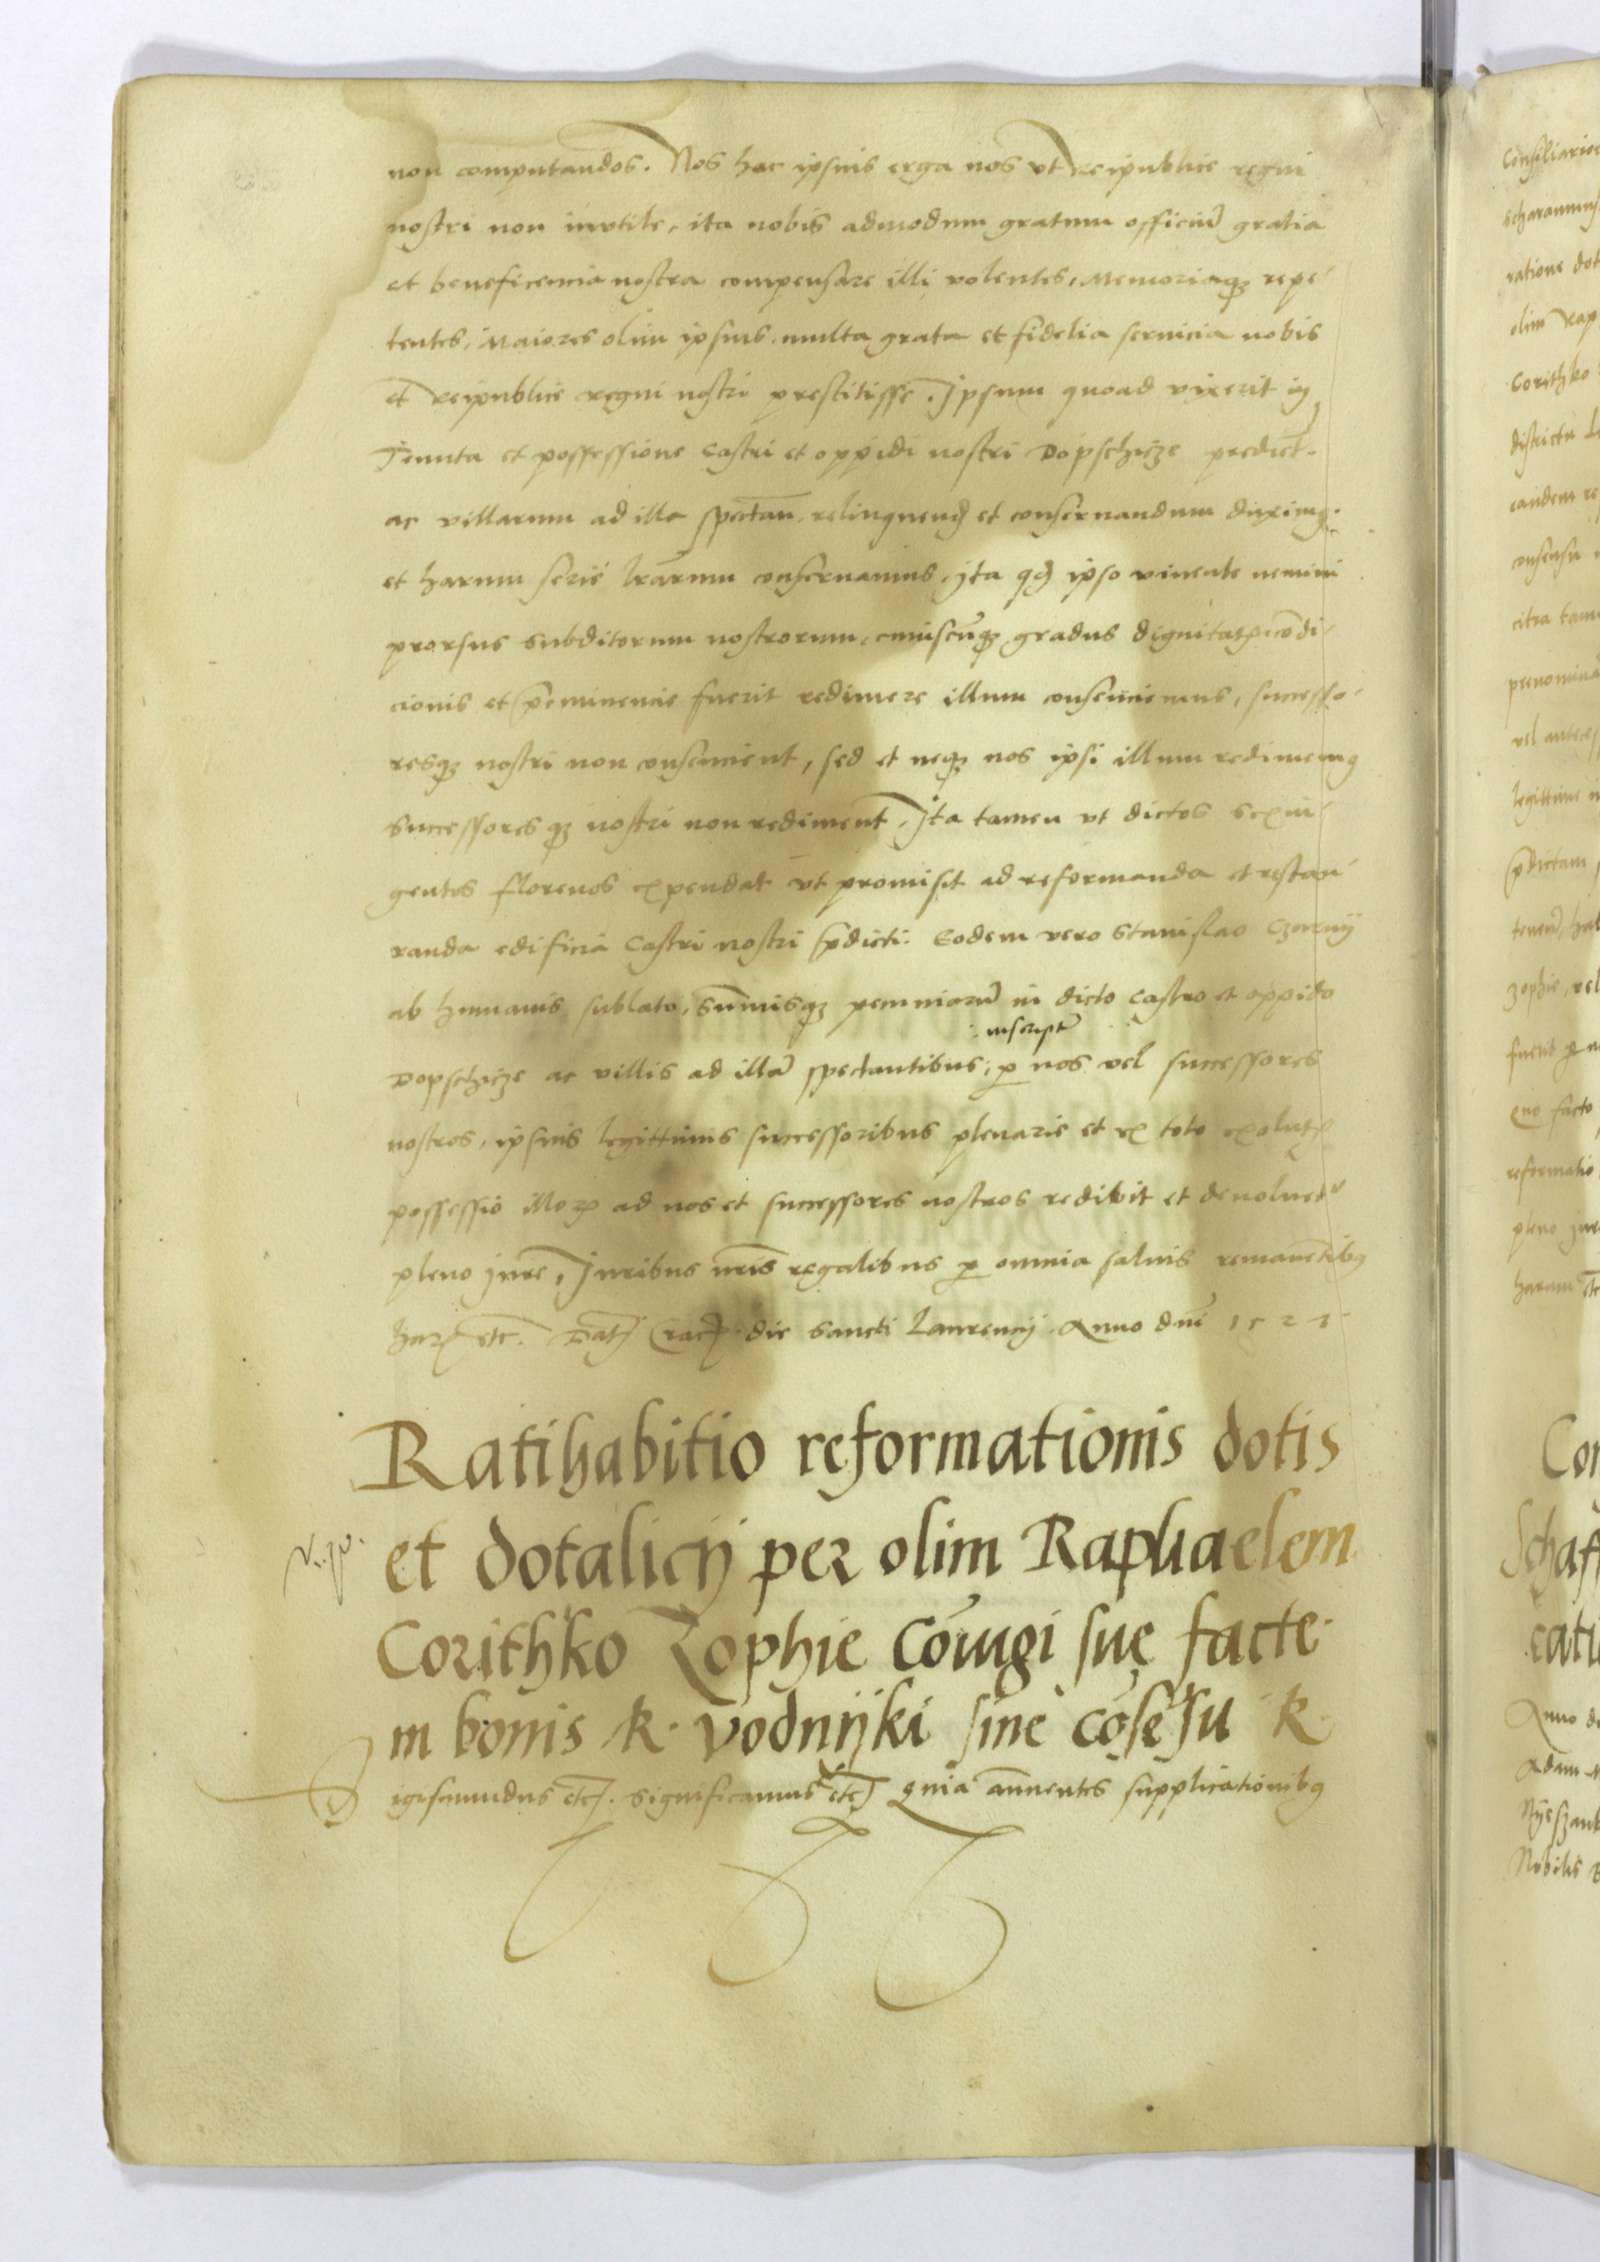 non computandos. Nos hac ipsius erga nos vt Reipublice regni
nostri non invtile, ita nobis admodum gratum officiũ gratia
et beneficencia nostra compensare illi volentes, Memoriaqꝫ repe-
tentes, Maiores olim ipsius multa grata et fidelia seruicia nobis
et Reipublice regni nostri prestitisse. Ipsum quoad vixerit in
Tenuta et possessione Castri et oppidi nostri Dopschicze predict.
ac villarum ad illa spectan. relinquend et conseruandum duximꝰ.
et harum serie lrarum conseruamus, Ita qd ipso viuente nemini
prorsus subditorum nostrorum, cuiuscunqꝫ gradus dignitatꝭ condi-
cionis et p̃eminencie fuerit redimere illum consenciemus, successo-
resqꝫ nostri non consencient, sed et neqꝫ nos ipsi illum redimemꝰ
Successoresqꝫ nostri non rediment, Ita tamen vt dictos sexin-
gentos florenos expendat vt promisit ad reformanda et restau-
randa edificia Castri nostri p̃dicti. Eodem vero Stanislao Czarny
ab humanis sublato, Sum̃isqꝫ pecuniarũ in dicto Castro et oppido
inscriptꝭ
Dopschicze ac villis ad illã spectantibus, ꝑ nos vel successores
nostros, ipsius legittimis successoribus plenarie et ex toto exolutꝭ
possessio illoꝝ ad nos et successores nostros redibit et deuoluetʳ
pleno Jure, Juribus nris̃ regalibus ꝑ omnia saluis remanentibꝰ
haꝝ etc. Dat Crac die Sancti Laurencij Anno dnĩ 1521
Ratihabitio reformationis dotis
et dotalicij per olim Raphaelem
Corithko Zophie Coniugi sue facte
in bonis R. Vodnijki sine cõsẽsu R
Sigismundus etc. Significamus etc Quia annuentes supplicationibꝰ
Consiliarior
ratione dot
olim Rap
Corithko
districtu
eandem re
consensu
citra tam
vel anteces
legittime
p̃dictam
Zophie, vel
fuerit ꝑ n
quo facto
reformatio
pleno Jur
harum etc
Con
Schaf
cati
Anno d
Adam
Nobilis